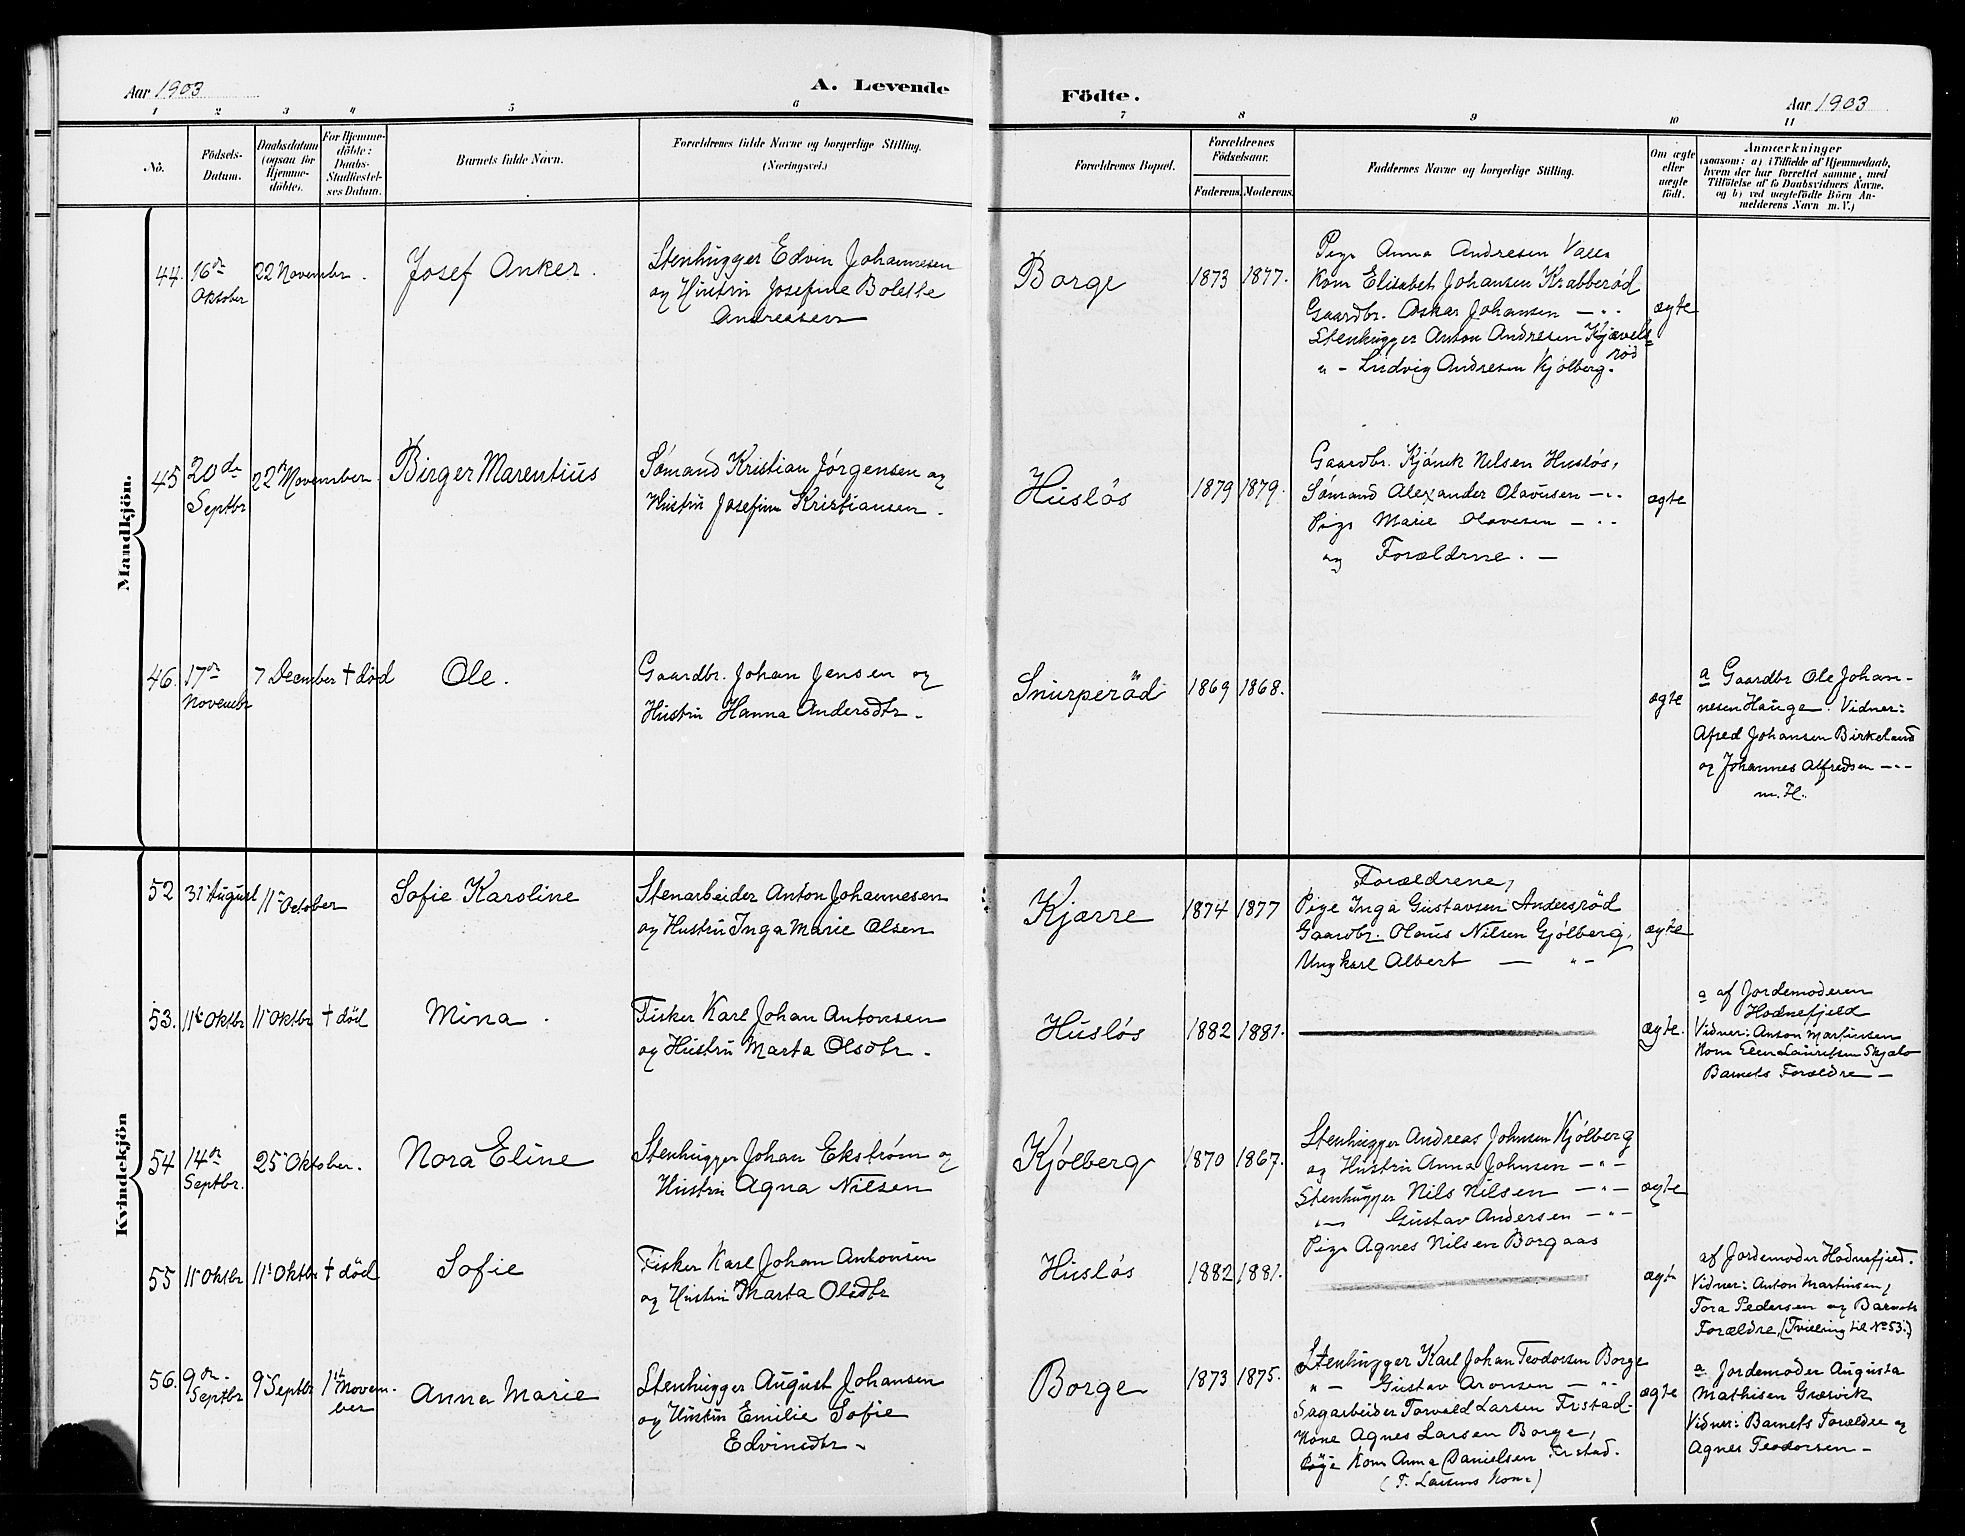 Aar 1903
A. Levende
Födte.
Aar 1903
1 2 3 4 5 6 7 8 9 10 11
Nö.
Födsels-
Datum.
Daabsdatum
(ogsaa for
Hjemme-
döbte).
For Hjemme-
döbte:
Daabs-
Stadfæstel-
ses Datum.
Barnets fulde Navn.
Forældrenes fulde Navne og borgerlige Stilling.
(Næringsvei.)
Forældrenes Bopæl.
Forældrenes
Födselsaar.
Faderens. Moderens.
Faddernes Navne og borgerlige Stilling.
Om ægte
eller
uægte
födt.
Anmærkninger
(saasom: a) i Tilfælde af Hjemmedaab,
hvem der har forrettet samme, med
Tilföielse af to Daabsvidners Navne.
og b) ved uægtefödte Börn An-
melderens Navn m. V.)
Mandkjön.
44. 16de
Oktober
22 November.
Josef Anker.
Stenhugger Edvin Johannesen
og Hustru Josefine Bolette
Andreasen
Borge
1873 1877.
Pige Anna Andresen Valle
Kone Elisabet Johansen Krabberød
Gaardbr. Oskar Johansen — " .
Stenhugger Anton Andresen Kjævels-
rød
" - Ludvig Andresen Kjølberg.
ægte
45 20de
Septbr
22 November.
Birger Marentius
Sømand Kristian Jørgensen og
Hustru Josefine Kristiansen.
Husløs
1879 1879.
Gaardbr. Nilsen Husløs,
Sømand Alexander Olavesen — " .
Pige Marie Olavesen — " .
og Forældrene. —
ægte
46. 17de
Novembr
7 December † død
Ole.
Gaardbr. Johan Jensen og
Hustru Hanna Andersdtr.
Snurperød
1869 1868.
ægte
a Gaardbr Ole Johan-
nesen Hauge. Vidner:
Afred Johansen Birkeland
og Johannes Alfredsen — " —
m. H.
Kvindekjön
52 31 August 11 October
Sofie Karoline
Stenarbeider Anton Johannesen
og Hustru Inga Marie Olsen
Kjærre
1874 1877
Forældrene,
Pige Inga Gustavsen Andersrød
Gaardbr. Olaus Nilsen Gjølberg,
Ungkarl Albert — " —
ægte
53. 11te Oktbr 11 Oktbr † død
Mina.
Fisker Karl Johan Antonsen
og Hustru Marta Olsdtr.
Husløs
1882 1881.
ægte.
a af Jordemoderen
Hodnefjeld
Vidner: Anton Martinsen
Kone Elen Lauritsen Skjælo
Barnets Forældre —
54 14de
Septbr.
25 Oktober.
Nora Eline
Stenhugger Johan Ekstrøm og
Hustru Agna Nilsen
Kjølberg
1870 1867.
Stenhugger Andreas Johnsen Kjølberg
og Hustru Anna Johnsen — " —
Stenhugger Nils Nilsen — " —
" — Gustav Andersen — " —
Pige Agnes Nilsen Borgaas
ægte
55 11 Oktbr 11 Oktbr † død
Sofie
Fisker Karl Johan Antonsen
og Hustru Marta Olsdtr
Husløs
1882 1881.
ægte
af Jordemoder Hodnefjeld.
Vidner: Anton Martinsen,
Tora Pedersen og Barnets
Forældre. (Tvilling til No 53.)
56. 9de
Septbr
9 Septbr 1ste Novem-
ber
Anna Marie
Stenhugger August Johansen
og Hustru Emilie Sofie
Edvinsdtr.
Borge
1873 1875.
Stenhugger Karl Johan Teodorsen Borge
" — Gustav Aronsen — " —
Sagarbeider Torvald Larsen Frstad.
Kone Agnes Larsen Borge,
Pige Kone Anna Danielsen Frstad.
(T. Larsens Kone)
ægte
a Jordemoder Augusta
Mathisen Græsvik
Vidner: Barnets Forældre og
Agnes Teodorsen —